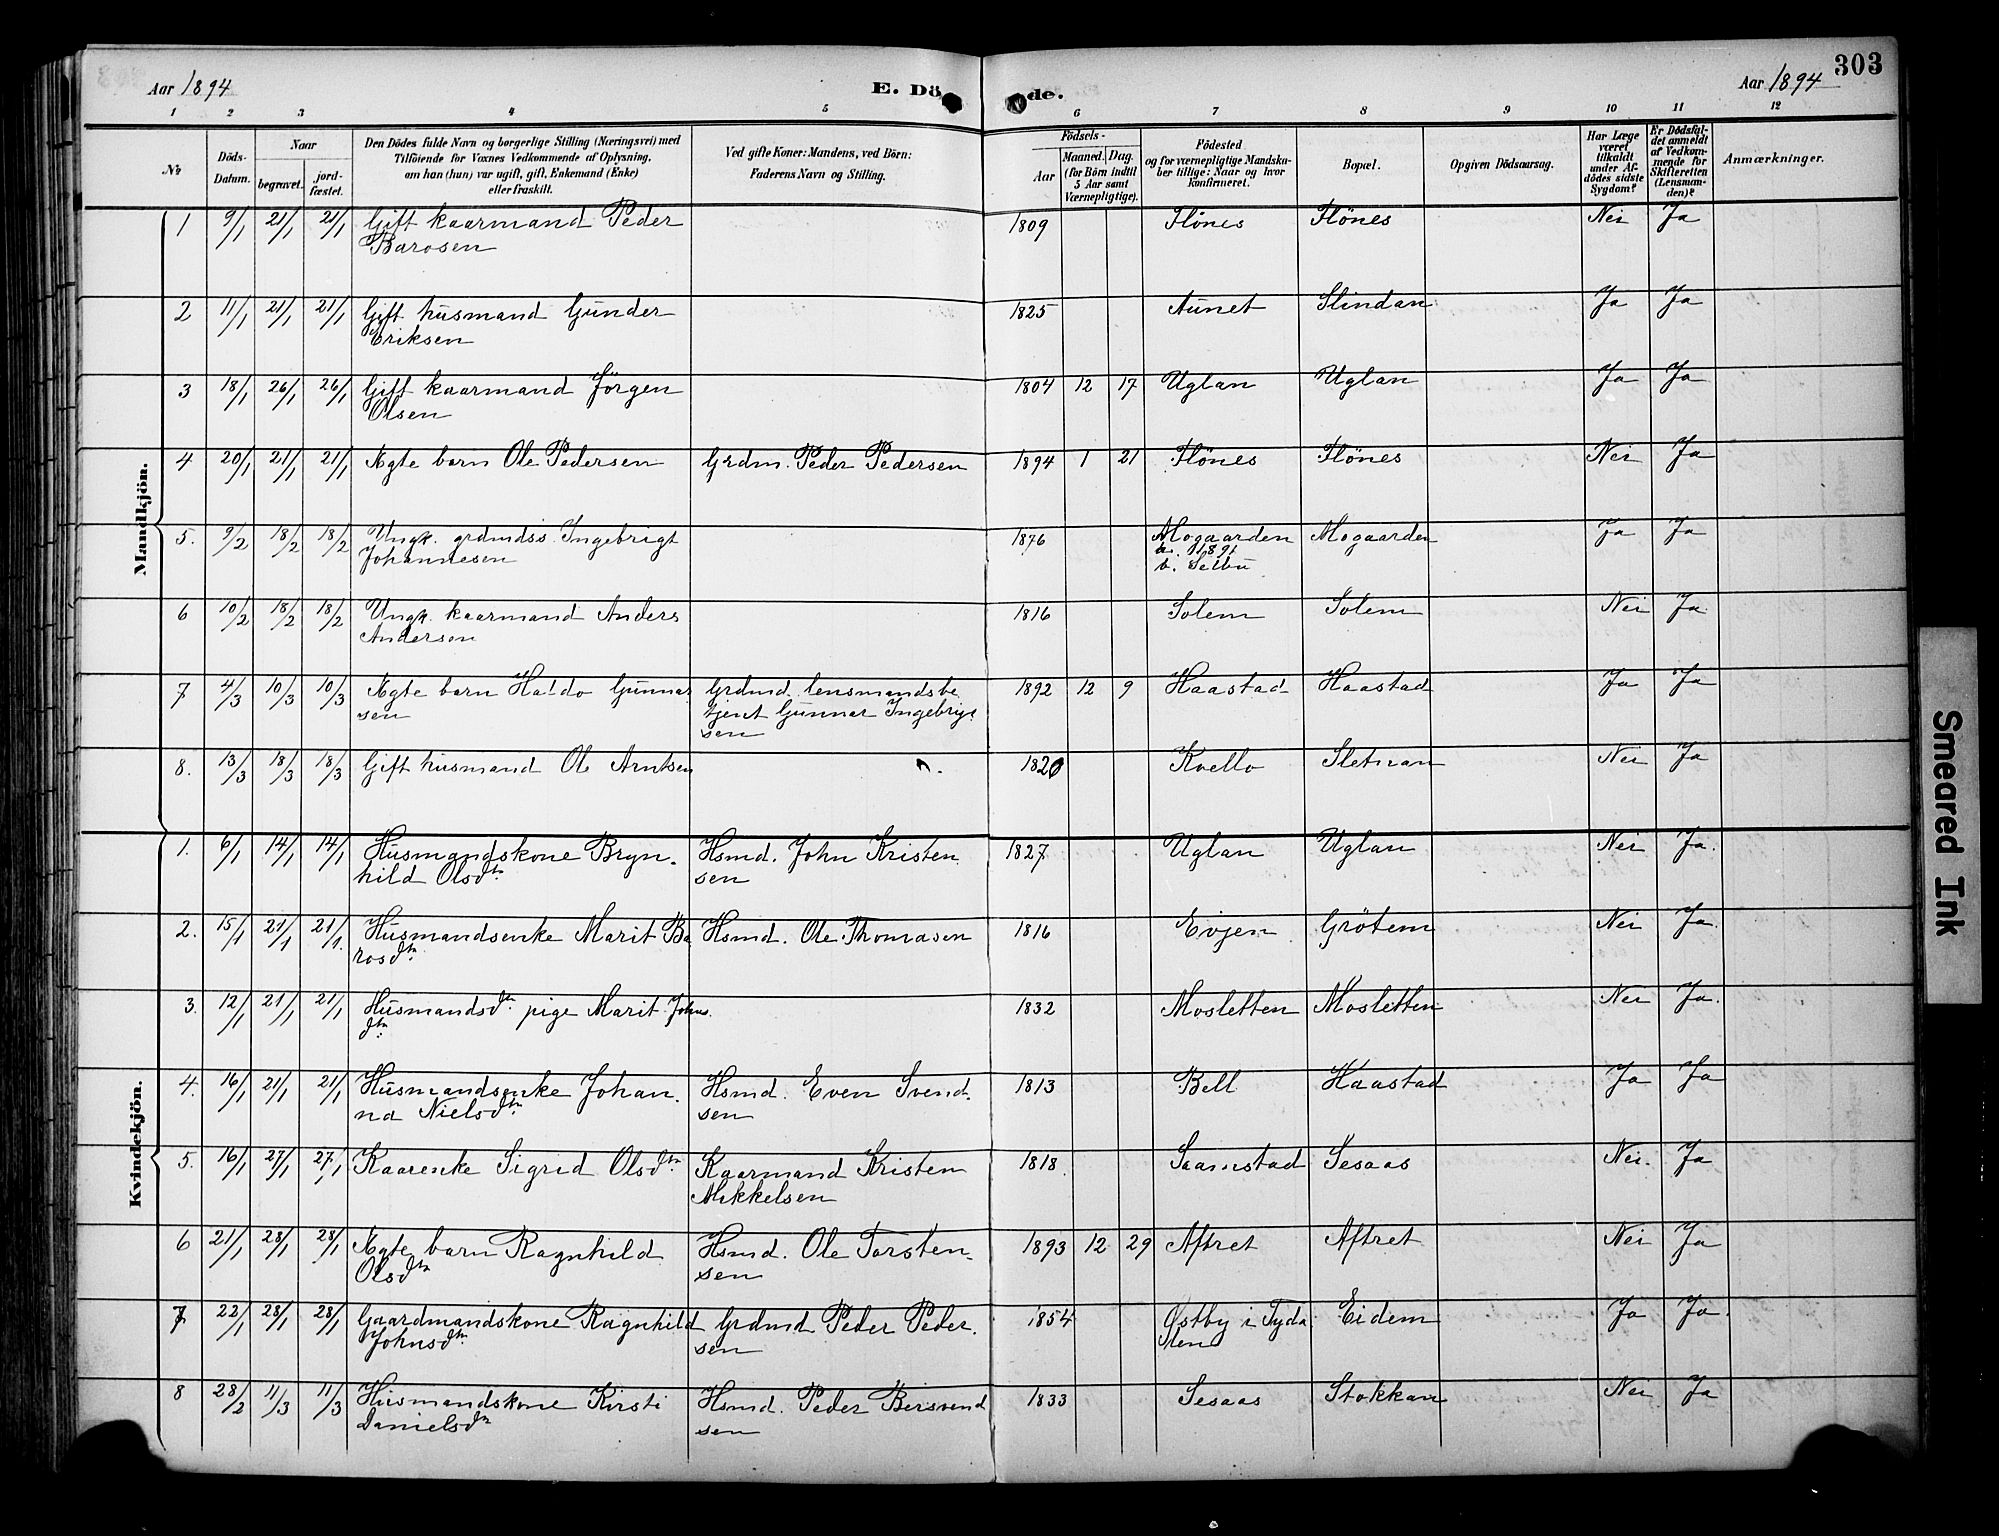 303
Aar 1894 E. Dö de. Aar 1894
1 2 3 4 5 6 7 8 9 10 11 12
№ Döds-Datum. Naar begravet. jord-fæstet. Den Dödes fulde Navn og borgerlige Stilling (Næringsvei) med Tilföiende for Voxnes Vedkommende af Oplysning, om han (hun) var ugift, gift, Enkemand (Enke) eller fraskilt. Ved gifte Koner: Mandens, ved Börn: Faderens Navn og Stilling. Födsels- Aar Maaned. Dag. (for Börn indtil 5 Aar samt Værnepligtige). Födested og for værnepligtige Mandskaber tillige: Naar og hvor konfirmeret. Bopæl. Opgiven Dödsaarsag. Har Læge været tilkaldt under Afdödes sidste Sygdom? Er Dödsfaldet anmeldt af Vedkommende for Skifteretten (Lensmanden)? Anmærkninger.
Mandkjön.
1 9/1 21/1 21/1 Gift kaarmand Peder 1809 Flönes Flönes Nei Ja
Barosen
2 11/1 21/1 21/1 Gift husmand Gunder 1825 Aunet Slindan Ja Ja
Eriksen
3 18/1 26/1 26/1 Gift kaarmand Jörgen 1804 12 17 Uglan Uglan Ja Ja
Olsen
4 20/1 21/1 21/1 Ægte barn Ole Pedersen Grdm. Peder Pedersen 1894 1 21 Flönes Flönes Nei Ja
5. 9/2 18/2 18/2 Ungk. grdmdss. Ingebrigt 1876 Mogaarden Mogaarden Ja Ja
Johannesen k. 1891
v. Selbu
6 10/2 18/2 18/2 Ungk. kaarmand Anders 1816 Solem Solem Nei Ja
Andersen
7 4/3 10/3 10/3 Ægte barn Haldo Gunnar Grdmd. lensmandsbe 1892 12 9 Haastad Haastad Ja Ja
sen tjent Gunnar Ingebrigt
sen
8. 13/3 18/3 18/3 Gift husmand Ole Arntsen 1820 Kvello Sletman Nei Ja
Kvindekjön.
1. 6/1 14/1 14/1 Husmandskone Bryn- Hsmd. John Kristen 1827 Uglan Uglan Nei Ja.
hild Olsdtr. sen
2. 15/1 21/1 21/1. Husmandsenke Marit Ba Hsmd. Ole Thomasen 1816 Evjen Grötem Nei Ja
rosdtr.
3. 12/1 21/1 21/1 Husmandsdtr. pige Marit Johns. 1832 Mosletten Mosletten Nei Ja.
dtr.
4. 16/1 21/1 21/1 Husmandsenke Johan. Hsmd. Even Svend. 1813 Bell Haastad Ja Ja
na Nielsdtr. sen
5. 16/1 27/1 27/1 Kaarenke Sigrid Olsdtr. Kaarmand Kristen 1818. Saamstad Sesaas Nei. Ja
Mikkelsen
6 21/1 28/1 28/1 Ægte barn Ragnhild Hsmd. Ole Torsten- 1893 12 29 Aftret Aftret Nei Ja
Olsdtr sen
7 22/1 28/1 28/1 Gaardmandskone Ragnhild Grdmd Peder Peder. 1854 Østby i Tyda Eidem Ja Ja.
Johnsdtr. sen len
8 28/2 11/3 11/3 Husmandskone Kirsti Hsmd. Peder Bersvend 1833 Sesaas Stokkan Nei Ja
Danielsdtr sen
Smeared Ink